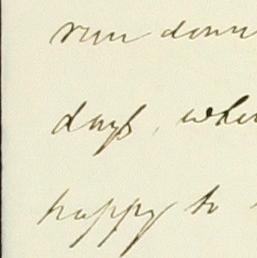 run down
days, whe
happy to